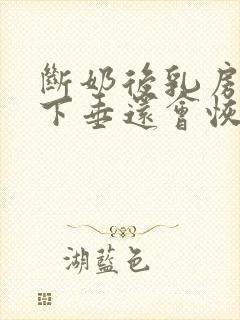 斷奶後乳房
下垂還會恢
湖藍色